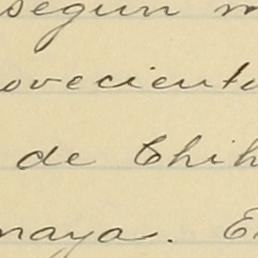 segun m
oveciento
de Chih
naya. E